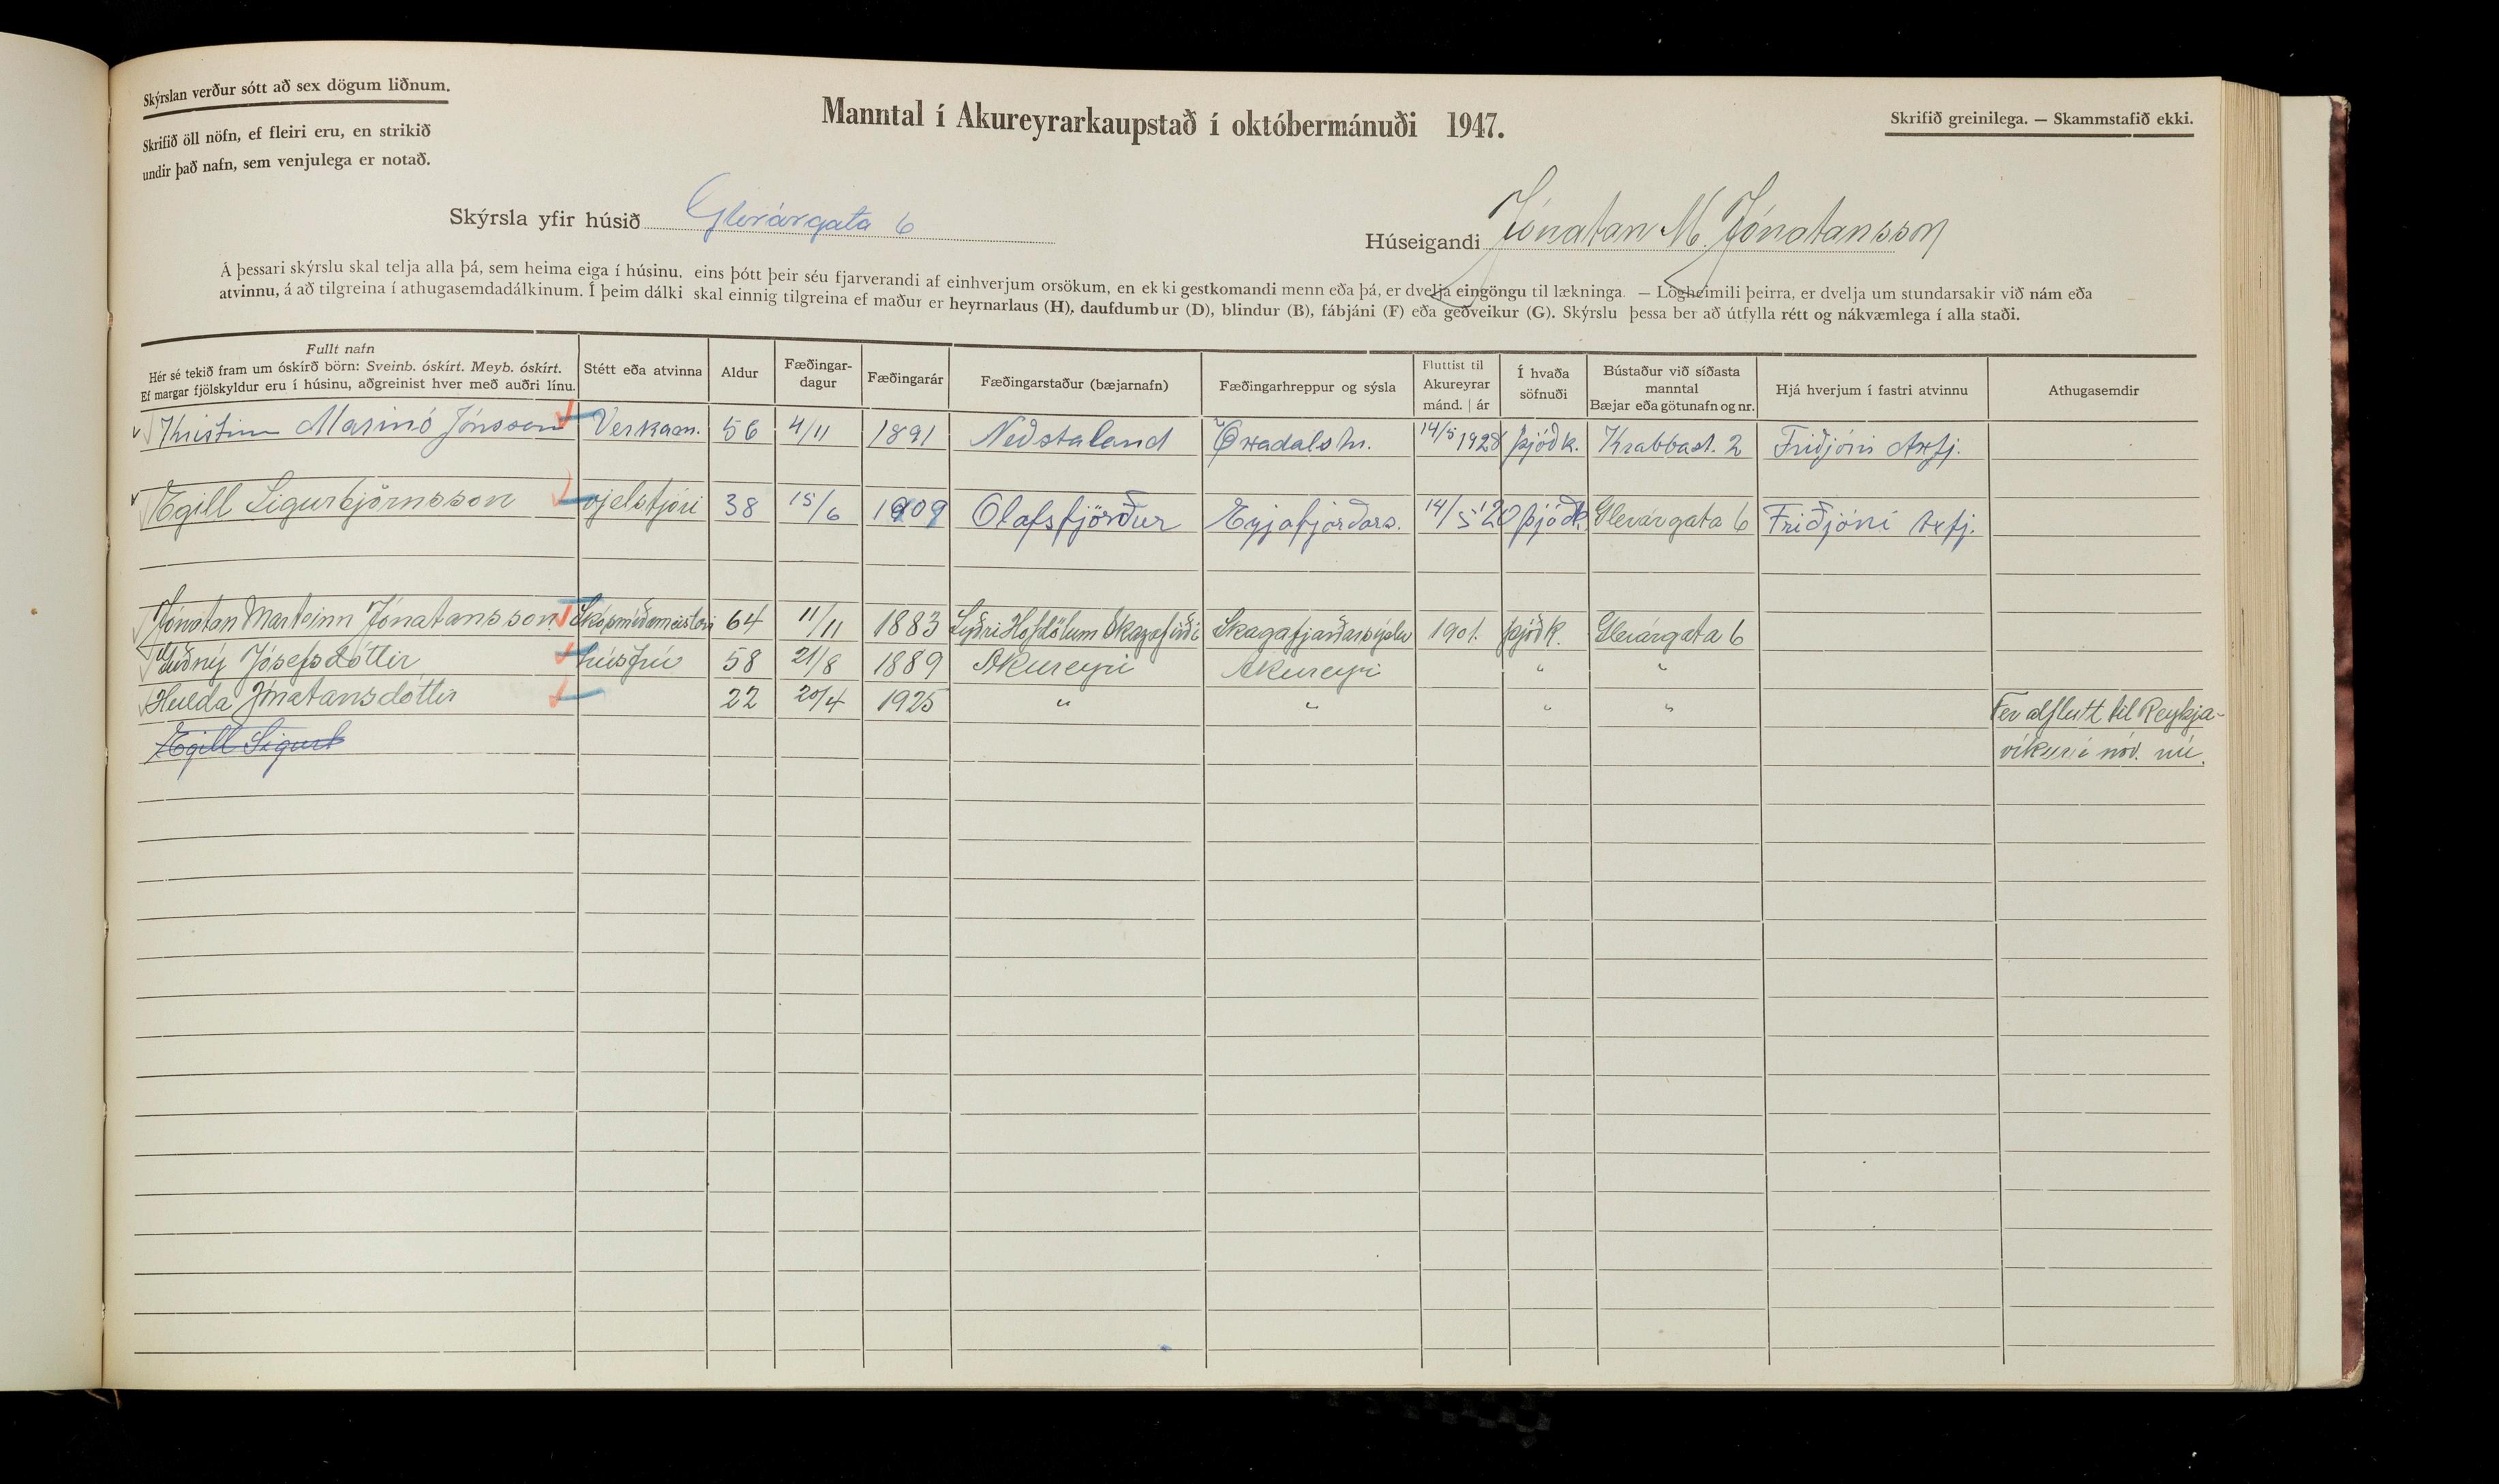 Skýrslan verður sótt að sex dögum liðnum.
Skrifið öll nöfn, ef fleiri eru, en strikið
undir það nafn, sem venjulega er notað.
Manntal í Akureyrarkaupstað í októbermánuði 1947.
Skrifið greinilega. — Skammstafið ekki.
Skýrsla yfir húsið Glerárgata 6
Húseigandi Jónatan M. Jónatansson
Á þessari skýrslu skal telja alla þá, sem heima eiga í húsinu, eins þótt þeir séu fjarverandi af einhverjum orsökum, en ekki gestkomandi menn eða þá, er dvelja eingöngu til lækninga. — Lögheimili þeirra, er dvelja um stundarsakir við nám eða
atvinnu, á að tilgreina í athugasemdadálkinum. Í þeim dálki skal einnig tilgreina ef maður er heyrnarlaus (H), daufdumbur (D), blindur (B), fábjáni (F) eða geðveikur (G). Skýrslu þessa ber að útfylla rétt og nákvæmlega í alla staði.
Fullt nafn
Hér sé tekið fram um óskírð börn: Sveinb. óskírt. Meyb. óskírt.
Ef margar fjölskyldur eru í húsinu, aðgreinist hver með auðri línu.
Stétt eða atvinna
Aldur
Fæðingar-
dagur
Fæðingarár
Fæðingarstaður (bæjarnafn)
Fæðingarhreppur og sýsla
Fluttist til
Akureyrar
mánd. | ár
Í hvaða
söfnuði
Bústaður við síðasta
manntal
Bæjar eða götunafn og nr.
Hjá hverjum í fastri atvinnu
Athugasemdir
Kristinn Marinó Jónsson Verkam. 56 4/11 1891 Neðstaland Öxadalshr. 14/5 1928 þjóðk. Krabbast. 2 Friðjóni Axfj.
Egill Sigurbjörnsson 38 15/6 1909 Olafsfjörður Eyjafjörðars. 14/5 '20 þjóðk. Glerárgata 6 Friðjóni Axfj.
Jónatan Marteinn Jónatansson Skósmíðameistari 64 11/11 1883 Syðri Hofdölum Skagafirði Skagafjarðarsýslu 1901. þjóðk. Glerárgata 6
Guðný Jósefsdóttir húsfrú 58 21/8 1889 Akureyri Akureyri " "
Hulda Jónatansdóttir 22 20/4 1925 " " " " Fer alflutt til Reykja-
Egill Sigurb víkur í nóv. nú.